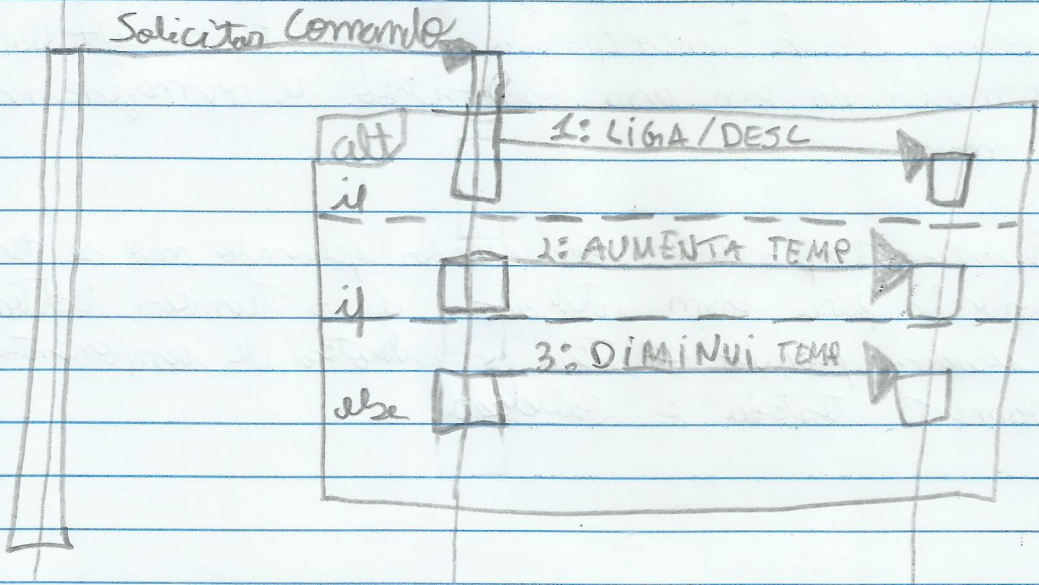 Solicitar Comando
alt
1: LIGA/DESL
if
2: AUMENTA TEMP
if
3: DIMINUI TEMP
else